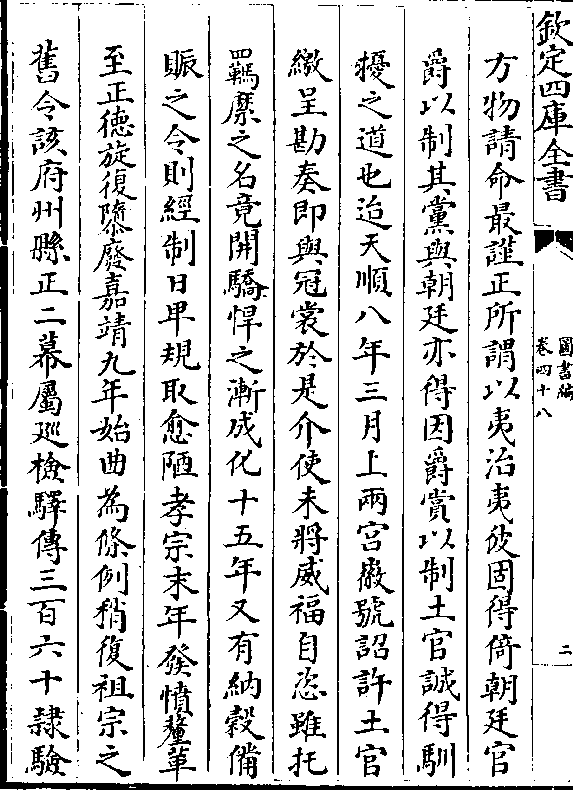 欽定四庫全書
圖書編
卷四十八
二
方物請命最謹正所謂以夷治夷彼固得倚朝廷官
爵以制其黨與朝廷亦得因爵賞以制土官誠得馴
擾之道也迨天順八年三月上兩宮徽號詔許土官
繳呈勘奏即與冠裳於是介使未將威福自恣雖托
羈縻之名竟開驕悍之漸成化十五年又有納榖備
賑之令則經制日卑規取愈陋孝宗末年發憤釐革
至正德旋復隳廢嘉靖九年始曲為條例稍復祖宗之
舊令該府州縣正二幕屬廵檢驛傳三百六十隷驗